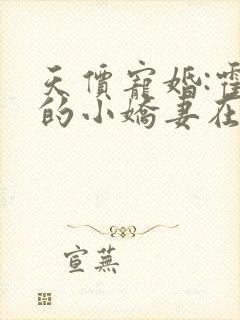 天價寵婚:霍
的小嬌妻在
宣蕪